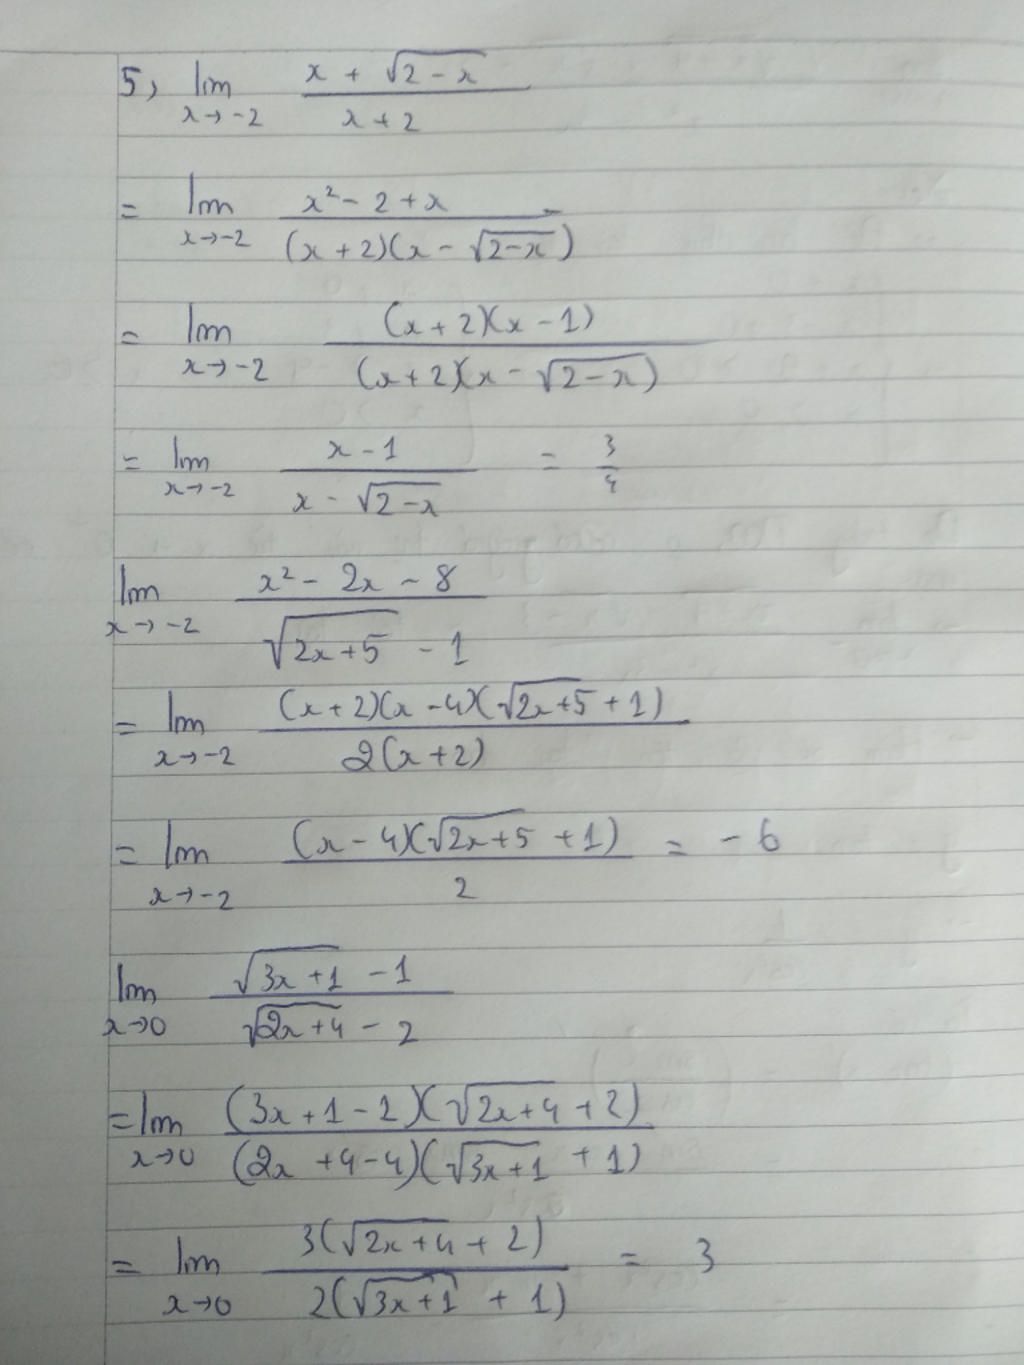 5, lim x→-2 (x + √(2 - x)) / (x + 2)
= lim x→-2 (x² - 2 + x) / ((x + 2)(x - √(2-x)))
= lim x→-2 ((x + 2)(x - 1)) / ((x + 2)(x - √(2-x)))
= lim x→-2 (x - 1) / (x - √(2-x)) = 3/4
lim x→-2 (x² - 2x - 8) / (√(2x+5) - 1)
= lim x→-2 ((x + 2)(x - 4)(√(2x+5) + 1)) / (2(x+2))
= lim x→-2 ((x - 4)(√(2x+5) + 1)) / 2 = -6
lim x→0 (√(3x+1) - 1) / (√(2x+4) - 2)
= lim x→0 ((3x + 1 - 1)(√(2x+4) + 2)) / ((2x + 4 - 4)(√(3x+1) + 1))
= lim x→0 (3(√(2x+4) + 2)) / (2(√(3x+1) + 1)) = 3